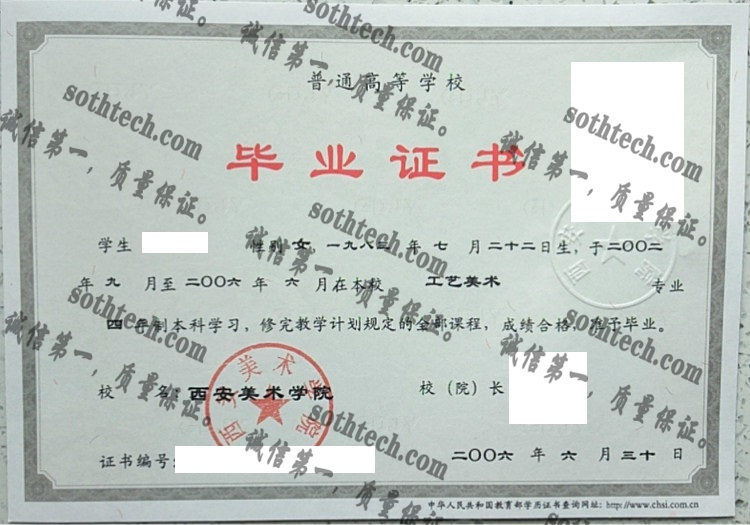 普通高等学校
毕业证书
学生 性别 女 一九八三 年 七 月 二十二日生，于二〇〇二
年 九 月至 二〇〇六 年 六 月在本校 工艺美术 专业
四 年制本科学习，修完教学计划规定的全部课程，成绩合格，准予毕业。
校 名：西安美术学院 校（院）长
西安美术学院
证书编号： 二〇〇六 年 六 月 三十 日
中华人民共和国教育部学历证书查询网址：http://www.chsi.com.cn
sothtech.com
诚信第一，质量保证。
sothtech.com
诚信第一，质量保证。
sothtech.com
诚信第一，质量保证。
sothtech.com
诚信第一，质量保证。
sothtech.com
诚信第一，质量保证。
sothtech.com
诚信第一，质量保证。
sothtech.com
诚信第一，质量保证。